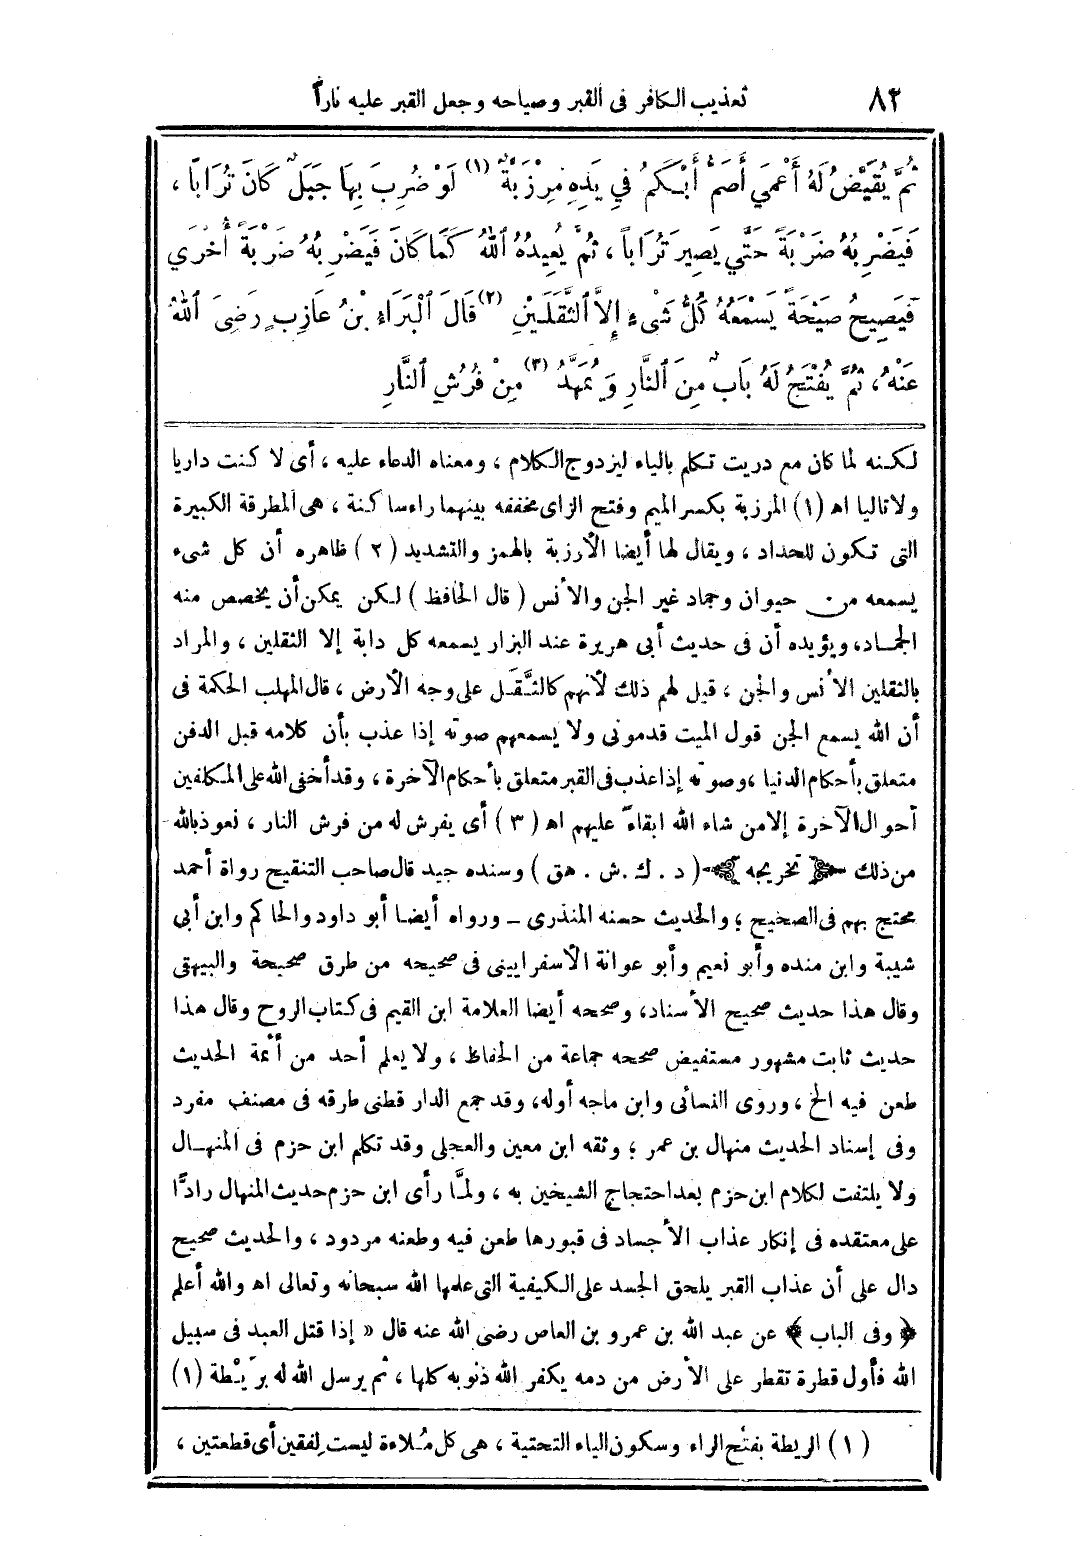 ٨٢ تعذيب الكافر فى القبر وصياحه وجعل القبر عليه نارا
ثُمَّ يُقَيَّضُ لَهُ أَعْمَي أَصَمُّ أَبْكَمُ فِي يَدِهِ مِرْزَبَةٌ (١) لَوْ ضُرِبَ بِهَا جَبَلٌ كَانَ تُرَابًا ،
فَيَضْرِبُهُ ضَرْبَةً حَتَّي يَصِيرَ تُرَاباً ، ثُمَّ يُعِيدُهُ اللهُ كَمَا كَانَ فَيَضْرِبُهُ ضَرْبَةً أُخْرَي
فَيَصِيحُ صَيْحَةً يَسْمَعُهُ كُلُّ شَىْءٍ إِلاَّ الثَّقَلَيْنِ (٢) قَالَ الْبَرَاءُ بْنُ عَازِبٍ رَضِىَ اللهُ
عَنْهُ ، ثُمَّ يُفْتَحُ لَهُ بَابٌ مِنَ النَّارِ وَيُمَهَّدُ (٣) مِنْ فُرُشِ النَّارِ
لكنه لما كان مع دريت تكلم بالياء ليزدوج الكلام ، ومعناه الدعاء عليه ، أى لا كنت داريا
ولا تاليا اه (١) المرزبة بكسر الميم وفتح الزاى مخففه بينهما راء ساكنة ، هى المطرقة الكبيرة
التى تكون للحداد ، ويقال لها أيضا الأرزبة بالهمز والتشديد (٢) ظاهره أن كل شىء
يسمعه من حيوان وجماد غير الجن والأنس ( قال الحافظ ) لكن يمكن أن يخصص منه
الجماد، ويؤيده أن فى حديث أبى هريرة عند البزار يسمعه كل دابة إلا الثقلين ، والمراد
بالثقلين الأنس والجن ، قيل لهم ذلك لأنهم كالثَّقَل على وجه الأرض ، قال المهلب الحكمة فى
أن الله يسمع الجن قول الميت قدمونى ولا يسمعهم صوته إذا عذب بأن كلامه قبل الدفن
متعلق بأحكام الدنيا ، وصوته إذا عذب فى القبر متعلق بأحكام الآخرة ، وقد أخفى الله على المكلفين
أحوال الآخرة إلا من شاء الله ابقاءً عليهم اه (٣) أى يفرش له من فرش النار ، نعوذ بالله
من ذلك تخريجه ( د . ك . ش . هق ) وسنده جيد قال صاحب التنقيح رواة أحمد
محتج بهم فى الصحيح ؛ والحديث حسنه المنذرى ـ ورواه أيضا أبو داود والحاكم وابن أبى
شيبة وابن منده وأبو نعيم وأبو عوانة الأسفراينى فى صحيحه من طرق صحيحة والبيهقى
وقال هذا حديث صحيح الأسناد، وصححه أيضا العلامة ابن القيم فى كتاب الروح وقال هذا
حديث ثابت مشهور مستفيض صححه جماعة من الحفاظ ، ولا يعلم أحد من أئمة الحديث
طعن فيه الخ ، وروى النسائى وابن ماجه أوله، وقد جمع الدار قطنى طرقه فى مصنف مفرد
وفى إسناد الحديث منهال بن عمر ؛ وثقه ابن معين والعجلى وقد تكلم ابن حزم فى المنهال
ولا يلتفت لكلام ابن حزم بعد احتجاج الشيخين به ، ولمَّا رأى ابن حزم حديث المنهال رادًّا
على معتقده فى إنكار عذاب الأجساد فى قبورها طعن فيه وطعنه مردود ، والحديث صحيح
دال على أن عذاب القبر يلحق الجسد على الكيفية التى علمها الله سبحانه وتعالى اه والله أعلم
﴿ وفى الباب ﴾ عن عبد الله بن عمرو بن العاص رضى الله عنه قال « إذا قتل العبد فى سبيل
الله فأول قطرة تقطر على الأرض من دمه يكفر الله ذنوبه كلها ، ثم يرسل الله له برَيْطة (١)
(١) الريطة بفتح الراء وسكون الياء التحتية ، هى كل مُلاءة ليست لِفقين أى قطعتين ،